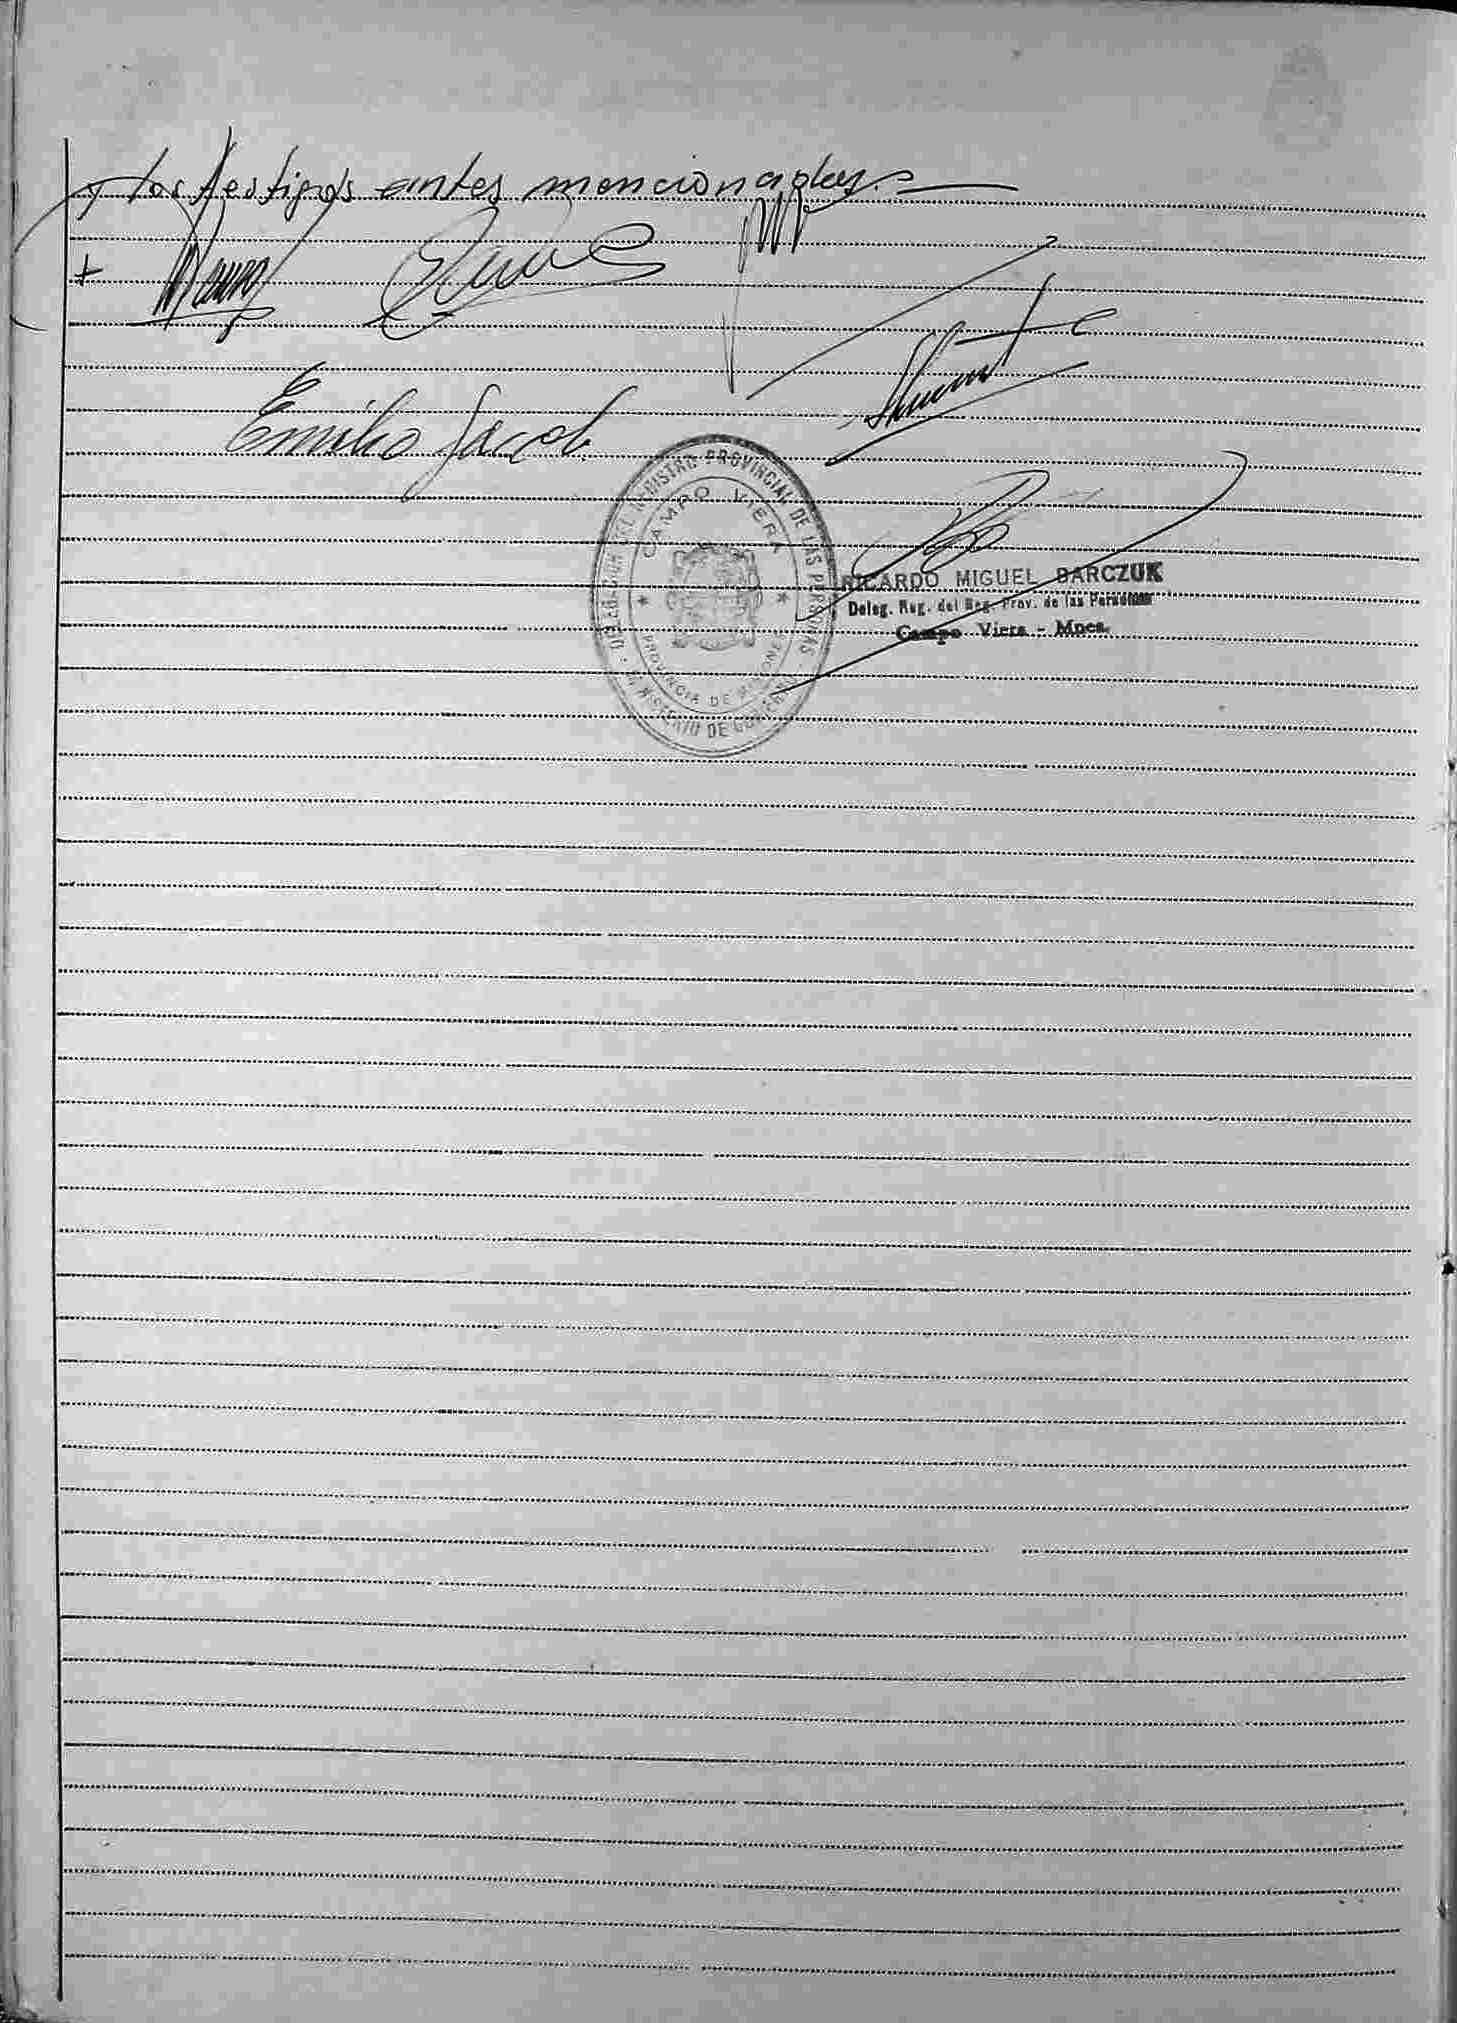 y los testigos antes mencionados.-
Emilio Jacob
DELEGACION DEL REGISTRO PROVINCIAL DE LAS PERSONAS
CAMPO VIERA
PROVINCIA DE MISIONES
MINISTERIO DE GOBIERNO
RICARDO MIGUEL BARCZUK
Deleg. Reg. del Reg. Prov. de las Personas
Campo Viera - Mnes.